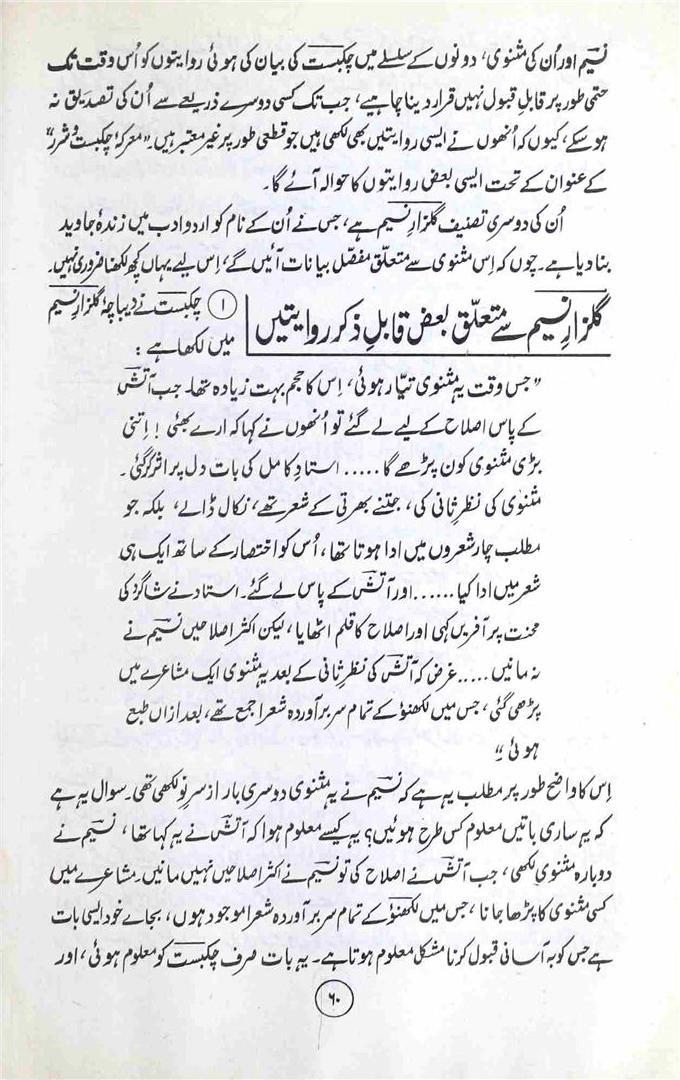 نسیم اور اُن کی مثنوی، دونوں کے سلسلے میں چکبست کی بیان کی ہوئی روایتوں کو اُس وقت تک
حتمی طور پر قابلِ قبول نہیں قرار دینا چاہیے، جب تک کسی دوسرے ذریعے سے اُن کی تصدیق نہ
ہوسکے، کیوں کہ اُنھوں نے ایسی روایتیں بھی لکھی ہیں جو قطعی طور پر غیر معتبر ہیں۔ "معرکۂ چکبست و شرر"
کے عنوان کے تحت ایسی بعض روایتوں کا حوالہ آئے گا۔
اُن کی دوسری تصنیف گلزارِ نسیم ہے، جس نے اُن کے نام کو اردو ادب میں زندۂ جاوید
بنا دیا ہے۔ چوں کہ اِس مثنوی سے متعلق مفصّل بیانات آئیں گے، اِس لیے یہاں کچھ لکھنا ضروری نہیں۔
گلزارِ نسیم سے متعلّق بعض قابلِ ذکر روایتیں
① چکبست نے دیباچۂ گلزارِ نسیم
میں لکھا ہے :
"جس وقت یہ مثنوی تیّار ہوئی، اِس کا حجم بہت زیادہ تھا۔ جب آتش
کے پاس اصلاح کے لیے لے گئے تو اُنھوں نے کہا کہ ارے بھئی ! اِتنی
بڑی مثنوی کون پڑھے گا ..... استادِ کامل کی بات دل پر اثر کر گئی۔
مثنوی کی نظرِ ثانی کی، جتنے بھرتی کے شعر تھے، نکال ڈالے، بلکہ جو
مطلب چار شعروں میں ادا ہوتا تھا، اُس کو اختصار کے ساتھ ایک ہی
شعر میں ادا کیا ...... اور آتش کے پاس لے گئے۔ استاد نے شاگرد کی
محنت پر آفریں کہی اور اصلاح کا قلم اٹھایا، لیکن اکثر اصلاحیں نسیم نے
نہ مانیں ..... غرض کہ آتش کی نظرِ ثانی کے بعد یہ مثنوی ایک مشاعرے میں
پڑھی گئی، جس میں لکھنؤ کے تمام سربرآوردہ شعرا جمع تھے، بعد ازاں طبع
ہوئی"۔
اِس کا واضح طور پر مطلب یہ ہے کہ نسیم نے یہ مثنوی دوسری بار از سرِ نو لکھی تھی۔ سوال یہ ہے
کہ یہ ساری باتیں معلوم کس طرح ہوئیں؟ یہ کیسے معلوم ہوا کہ آتش نے یہ کہا تھا، نسیم نے
دوبارہ مثنوی لکھی، جب آتش نے اصلاح کی تو نسیم نے اکثر اصلاحیں نہیں مانیں۔ مشاعرے میں
کسی مثنوی کا پڑھا جانا، جس میں لکھنؤ کے تمام سربرآوردہ شعرا موجود ہوں، بجاے خود ایسی بات
ہے جس کو بہ آسانی قبول کرنا مشکل معلوم ہوتا ہے۔ یہ بات صرف چکبست کو معلوم ہوئی، اور
۶۰